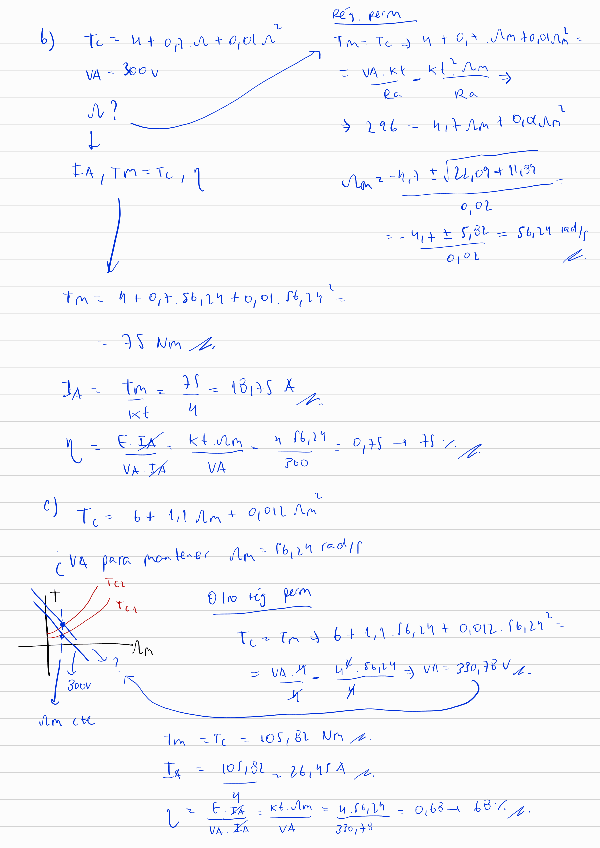 b) Tc = 4 + 0,7.Ω + 0,01Ω²
VA = 300V
Ω?
EA, Tm = Tc, η
Rég. perm
Tm = Tc → 4 + 0,7.Ωm + 0,01Ωm² =
= VA.kt/Ra - kt²Ωm/Ra →
→ 296 - 4,7Ωm + 0,01Ωm²
Ωm = -4,7 ± √22,09 + 11,84 / 0,02
= -4,7 ± 5,82 / 0,02 = 56,24 rad/s
Tm = 4 + 0,7.56,24 + 0,01.56,24² =
= 75 Nm
IA = Tm/kt = 75/4 = 18,75 A
η = E.IA/VA.IA = kt.Ωm/VA = 4.56,24/300 = 0,75 → 75%
c) Tc = 6 + 1,1Ωm + 0,012Ωm²
¿VA para mantener Ωm = 56,24 rad/s
T
Tc2
Tc1
Ωm
300V
?
Ωm cte
Otro rég perm
Tc = Tm → 6 + 1,1.56,24 + 0,012.56,24² =
= VA.4/4 - 4².56,24/4 → VA = 330,78 V
Tm = Tc = 105,82 Nm
IA = 105,82/4 = 26,45 A
η = E.IA/VA.IA = kt.Ωm/VA = 4.56,24/330,78 = 0,68 → 68%